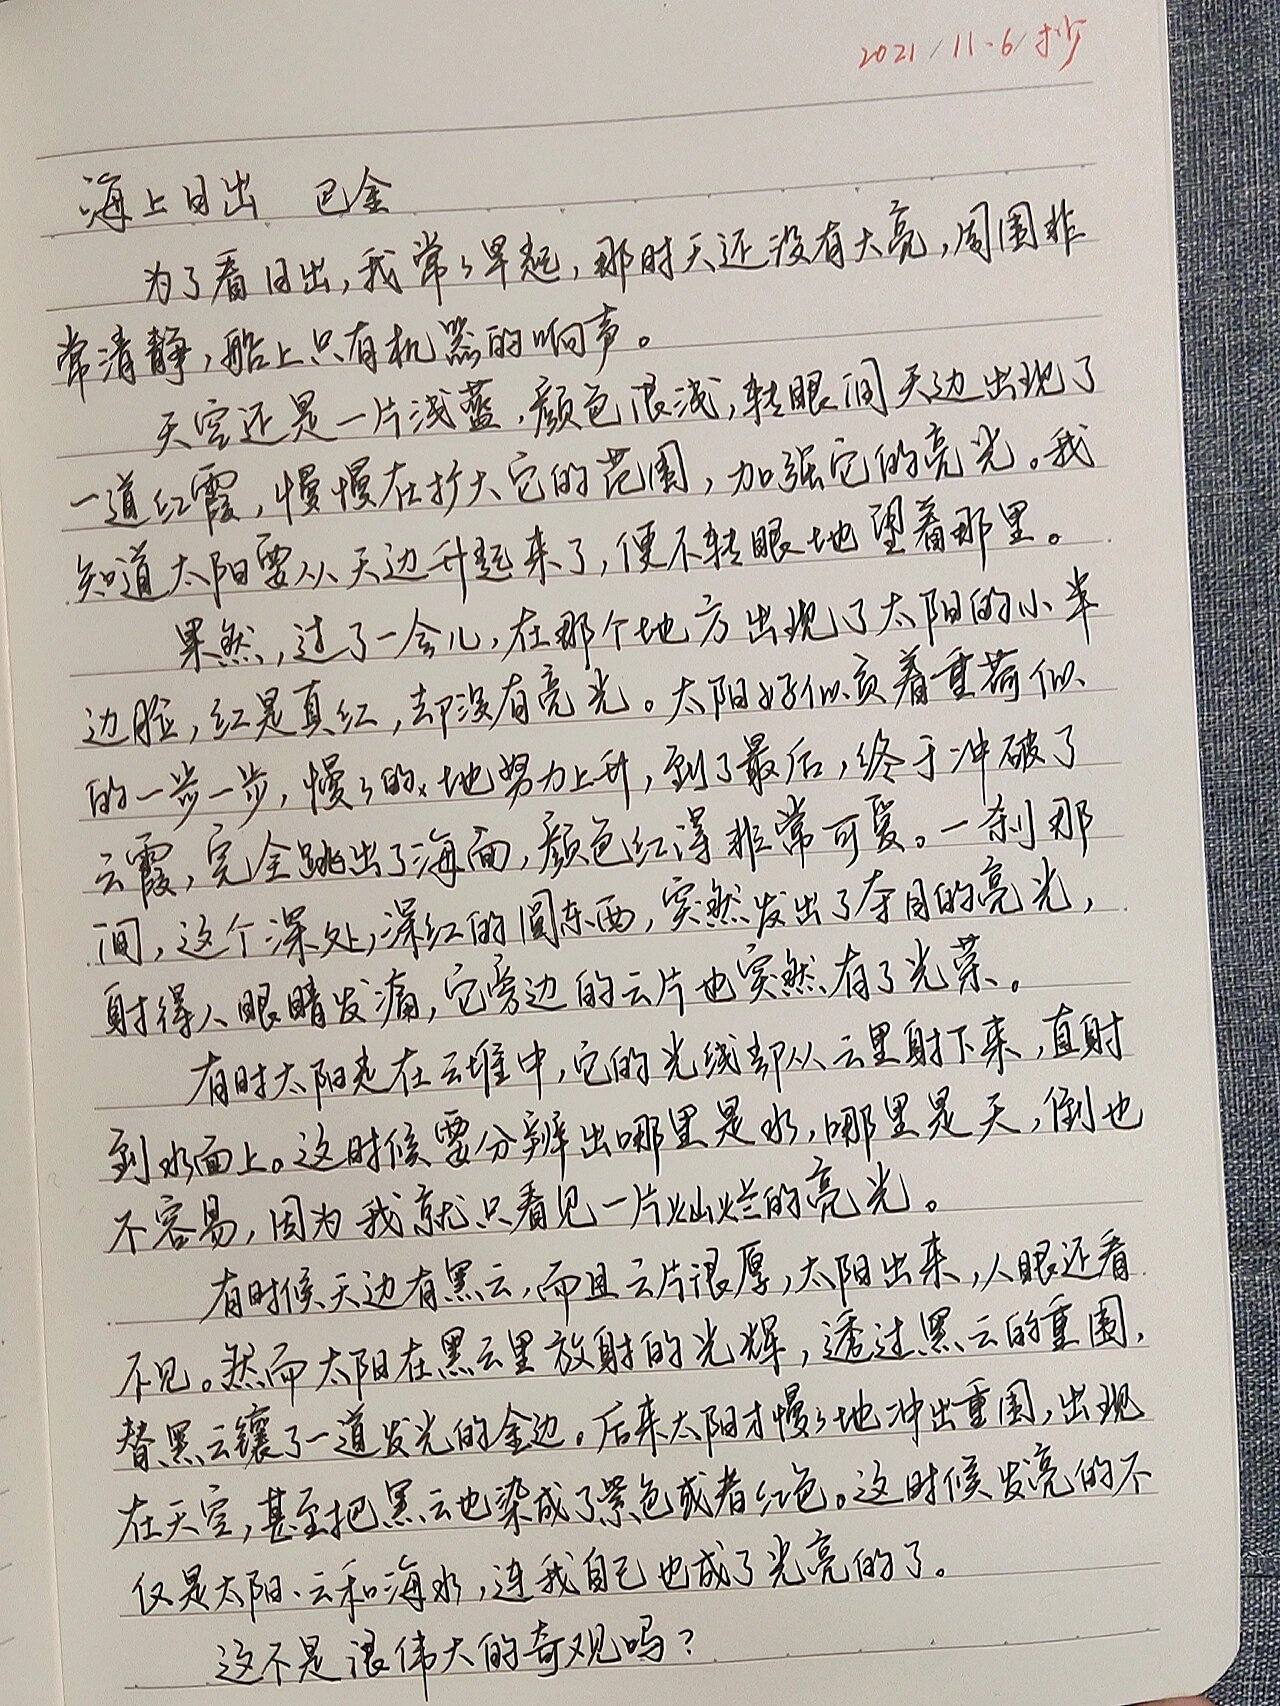 2021/11.6/抄
海上日出 巴金
为了看日出,我常々早起,那时天还没有大亮,周围非
常清静,船上只有机器的响声。
天空还是一片浅蓝,颜色很浅,转眼间天边出现了
一道红霞,慢慢在扩大它的范围,加强它的亮光。我
知道太阳要从天边升起来了,便不转眼地望着那里。
果然,过了一会儿,在那个地方出现了太阳的小半
边脸,红是真红,却没有亮光。太阳好似负着重荷似
的一步一步,慢々的地努力上升,到了最后,终于冲破了
云霞,完全跳出了海面,颜色红得非常可爱。一刹那
间,这个深处,深红的圆东西,突然发出了夺目的亮光,
射得人眼睛发痛,它旁边的云片也突然有了光荣。
有时太阳走在云堆中,它的光线却从云里射下来,直射
到水面上。这时候要分辨出哪里是水,哪里是天,倒也
不容易,因为我就只看见一片灿烂的亮光。
有时候天边有黑云,而且云片很厚,太阳出来,人眼还看
不见。然而太阳在黑云里放射的光辉,透过黑云的重围,
替黑云镶了一道发光的金边。后来太阳才慢々地冲出重围,出现
在天空,甚至把黑云也染成了紫色或者红色。这时候发亮的不
仅是太阳、云和海水,连我自己也成了光亮的了。
这不是很伟大的奇观吗?